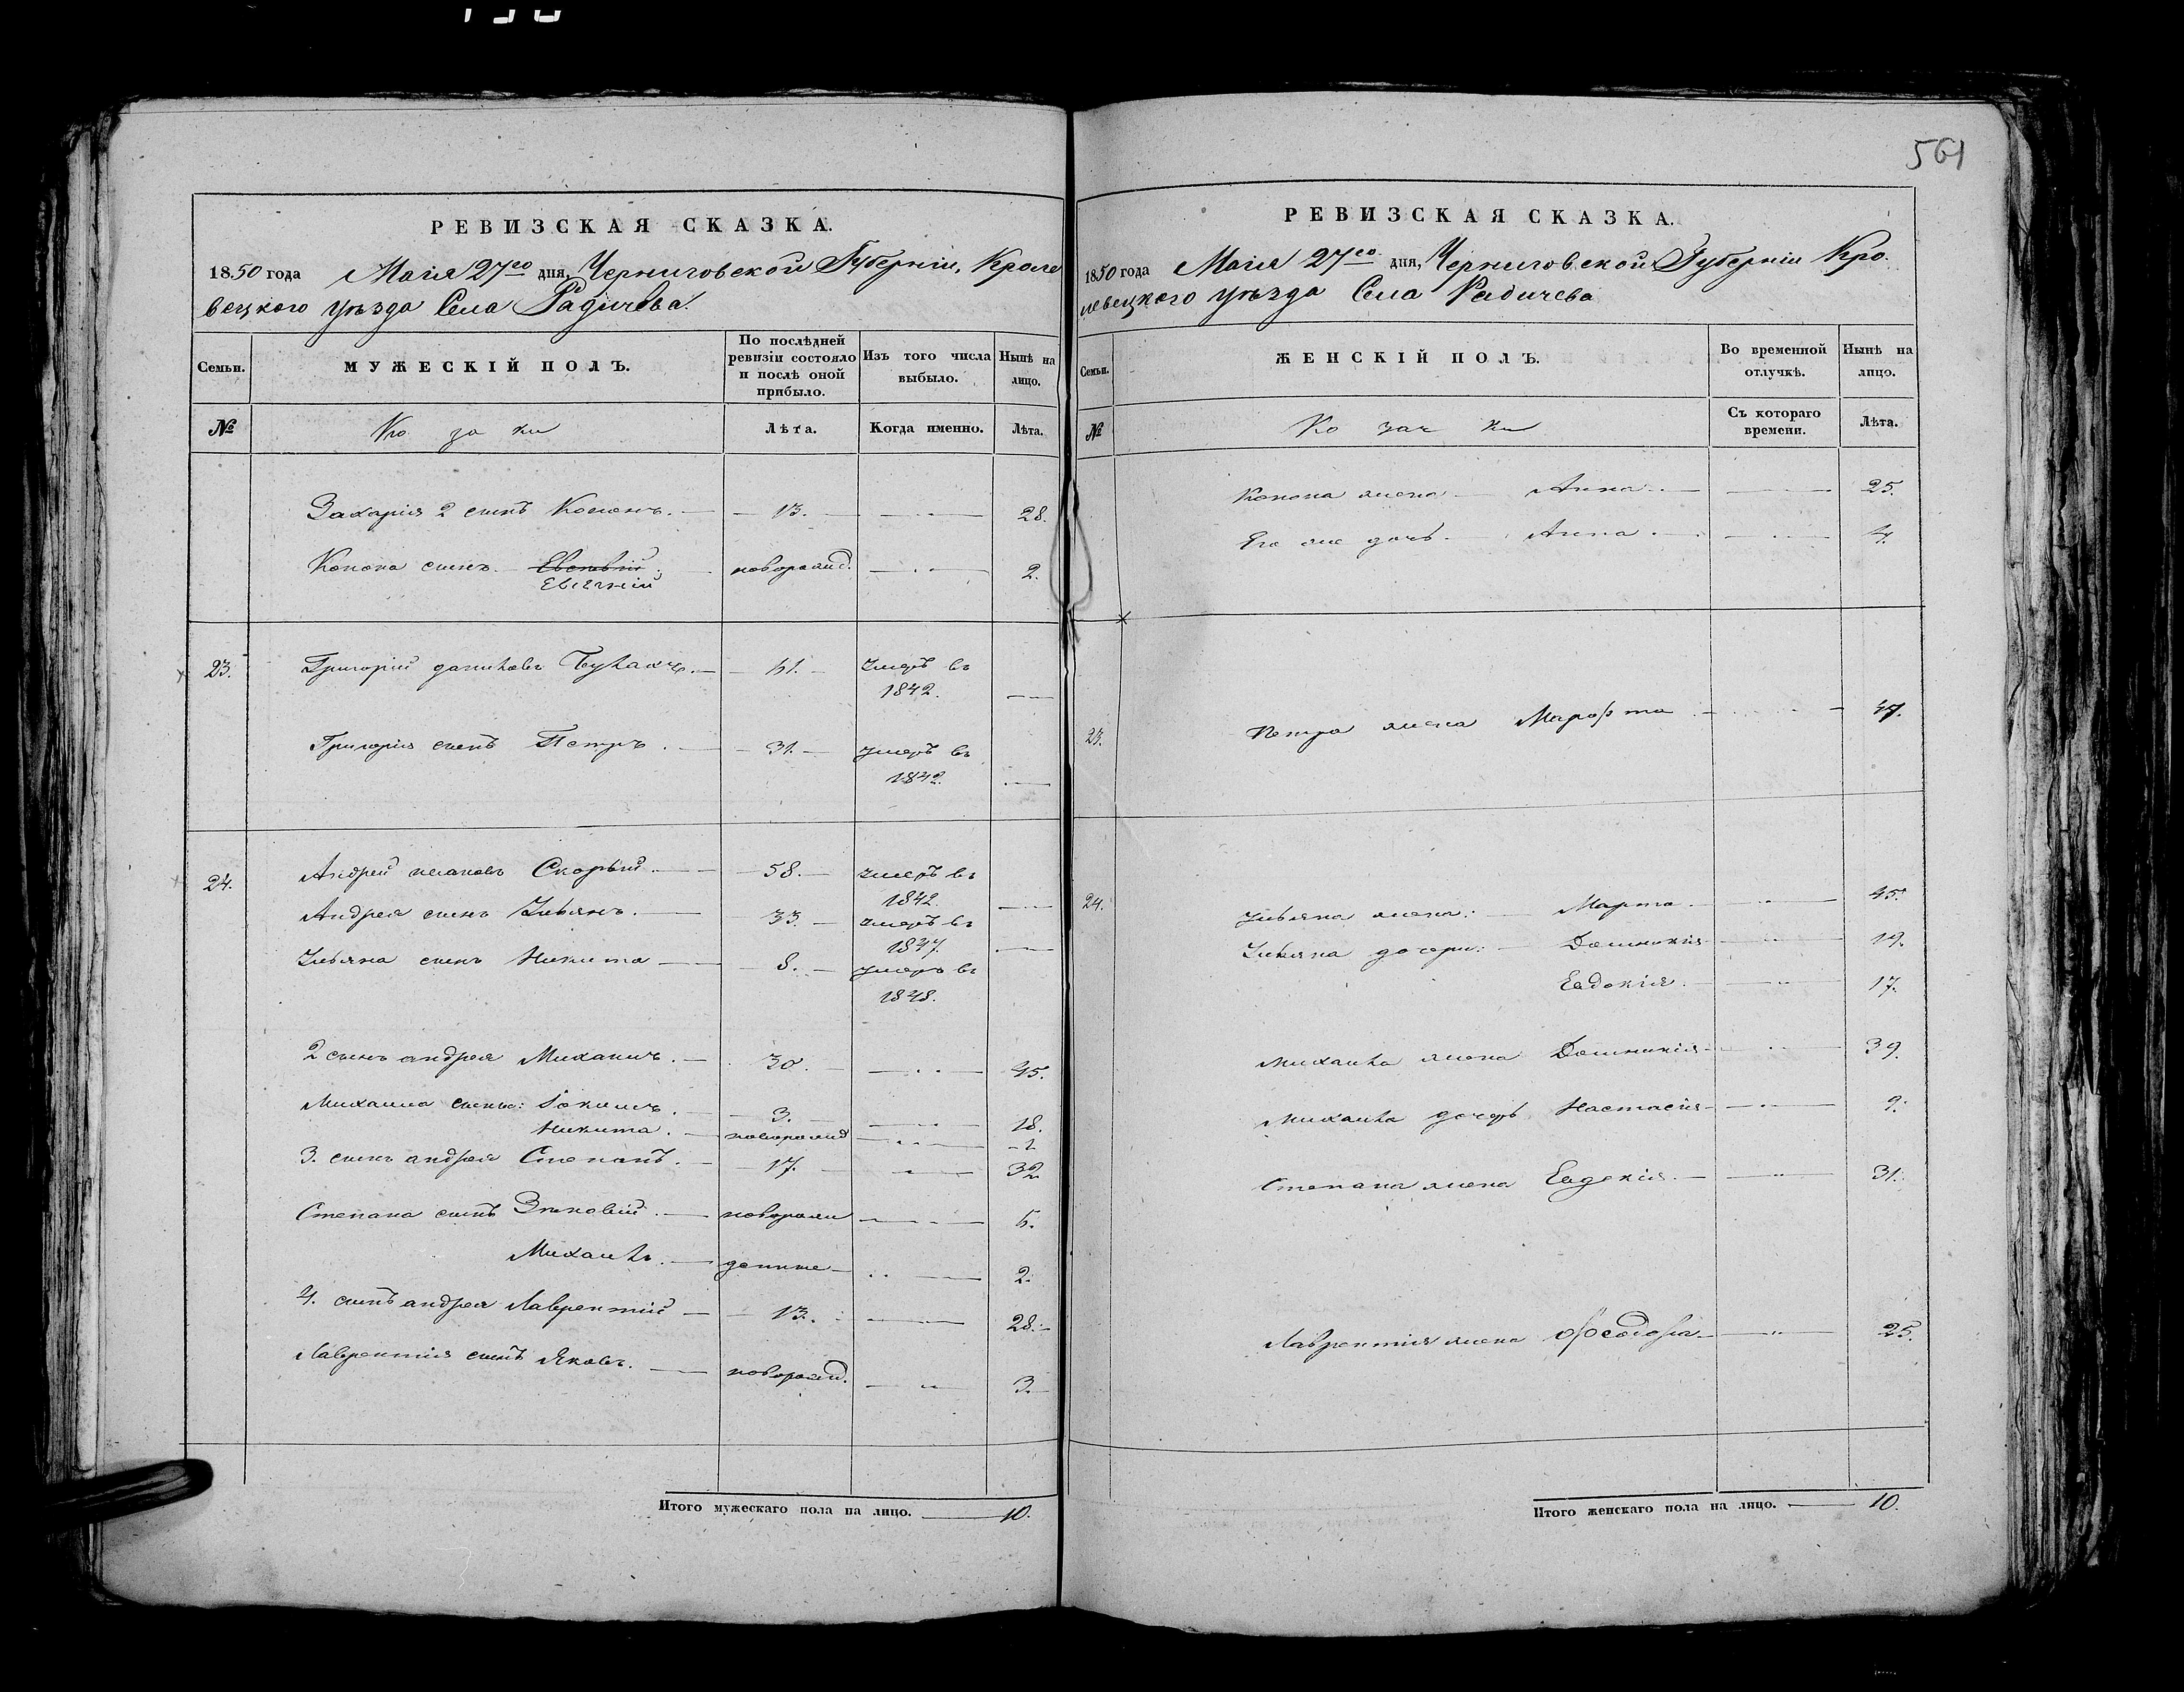 561
РЕВИЗСКАЯ СКАЗКА.
1850 года Маія 27го дня, Черниговской Губерніи, Кроле
вецкого уѣзда Села Радичева.
Семьи. МУЖЕСКІЙ ПОЛЪ. По послѣдней ревизіи состояло и послѣ оной прибыло. Изъ того числа выбыло. Нынѣ на лицо.
№ Козаки Лѣта. Когда именно. Лѣта.
Захарія 2 сынъ Кононъ. 13. 28.
Конона сынъ Евгеній новорожд. 2.
23. Григорій 61. умеръ въ
1842.
Григорія сынъ Петръ. 31. умеръ въ
1842.
24. Андрей Скорый. 58. умеръ въ
1842.
Андрея сынъ Ульянъ. 33. умеръ въ
1847.
Ульяна сынъ Никита 8. умеръ въ
1848.
2 сынъ андрея Михаилъ. 30. 45.
Михаила сыны: Іокимъ. 3. 18.
Никита. новорожд 1.
3. сынъ андрея Степанъ. 17. 32
Степана сынъ Зѣновій новорожд 6.
Михаилъ. 2.
4. сынъ андрея Лаврентій 13. 28.
Лаврентія сынъ Яковъ. новорожд. 3.
Итого мужескаго пола на лицо. 10.
РЕВИЗСКАЯ СКАЗКА.
1850 года Маія 27го дня, Черниговской Губерніи Кро
левецкого уѣзда Села Радичева
Семьи. ЖЕНСКІЙ ПОЛЪ. Во временной отлучкѣ. Нынѣ на лицо.
№ Козачки Съ котораго времени. Лѣта.
Конона жена Анна 25.
Его же дочь Анна 4.
23. Петра жена Марфта 47.
24. Ульяна жена: Марта 45.
Ульяна дочери: Домникія 19.
Евдокія. 17.
Михаила жена Домникія 39.
Михаила дочерь Настасія 9.
Степана жена Евдокія. 31.
Лаврентія жена 25.
Итого женскаго пола на лицо. 10.